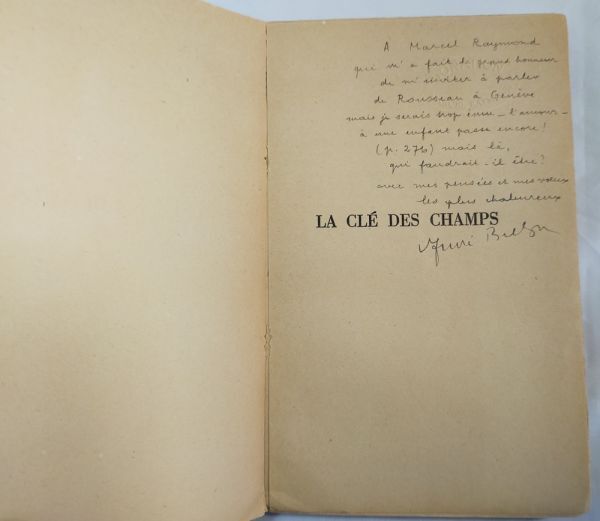 A Marcel Raymond
qui m'a fait le grand honneur
de m'inviter à parler
de Rousseau à Genève
mais je serais trop ému – l'amour –
à une enfant passe encore!
(p. 276) mais là,
qui faudrait-il être?
avec mes pensées et mes vœux
les plus chaleureux
LA CLÉ DES CHAMPS